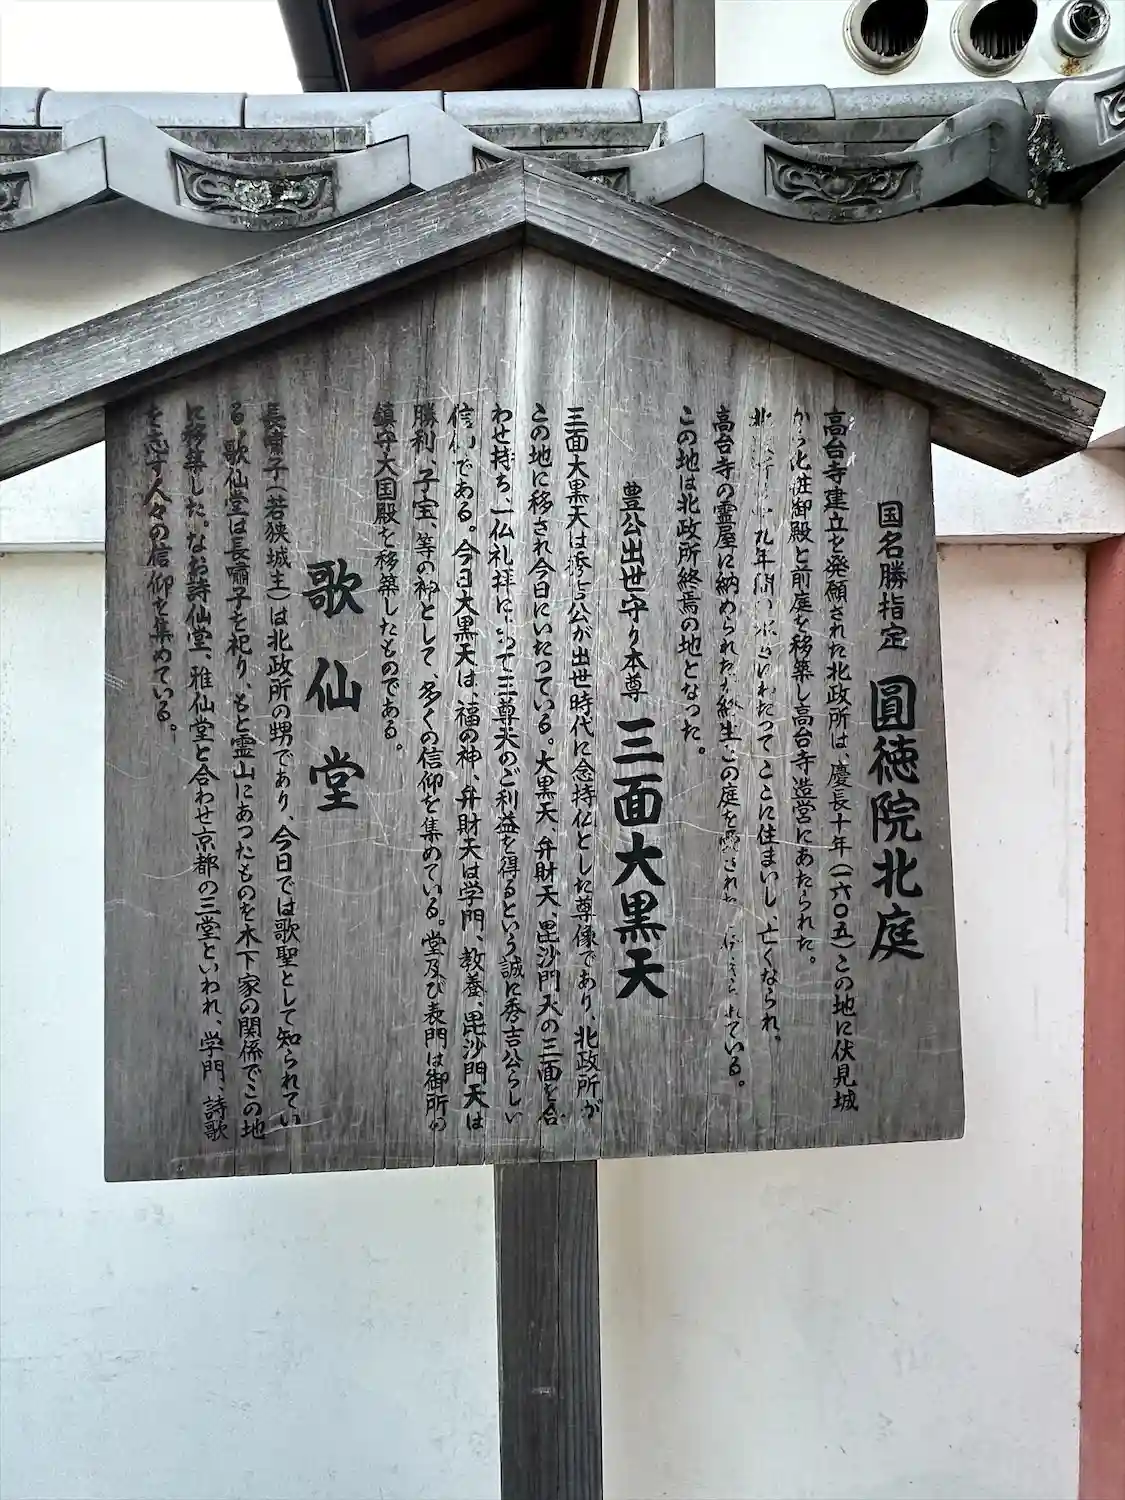 国名勝指定 圓徳院北庭
高台寺建立を発願された北政所は、慶長十年(一六〇五)この地に伏見城
から化粧御殿と前庭を移築し高台寺造営にあたられた。
北 九年間 わたってここに住まいし、亡くなられ、
高台寺の霊屋に納められた。 終生この庭を愛された ている。
この地は北政所終焉の地となった。
豊公出世守り本尊 三面大黒天
三面大黒天は秀吉公が出世時代に念持仏とした尊像であり、北政所が
この地に移され今日にいたっている。大黒天、弁財天、毘沙門天の三面を合
わせ持ち、一仏礼拝によって三尊天のご利益を得るという誠に秀吉公らしい
信仰である。今日大黒天は、福の神、弁財天は学門、教養、毘沙門天は
勝利、子宝、等の神として、多くの信仰を集めている。堂及び表門は御所の
鎮守大国殿を移築したものである。
歌仙堂
長嘯子(若狭城主)は北政所の甥であり、今日では歌聖として知られてい
る。歌仙堂は長嘯子を祀り、もと霊山にあったものを木下家の関係でこの地
に移築した。なお詩仙堂、雅仙堂と合わせ京都の三堂といわれ、学門、詩歌
を志す人々の信仰を集めている。